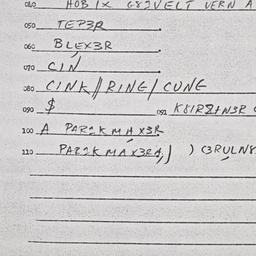 040 HOB IX G82VELT VERN A
050 TEP3R
060 BLEX3R
070 CIN
080 CINK//RING/CUNG
090 $ 092 K8IR2+N3R
100 A PAR2KMAX3R
110 PAR2KMAX3RA,) ) C3RULNY